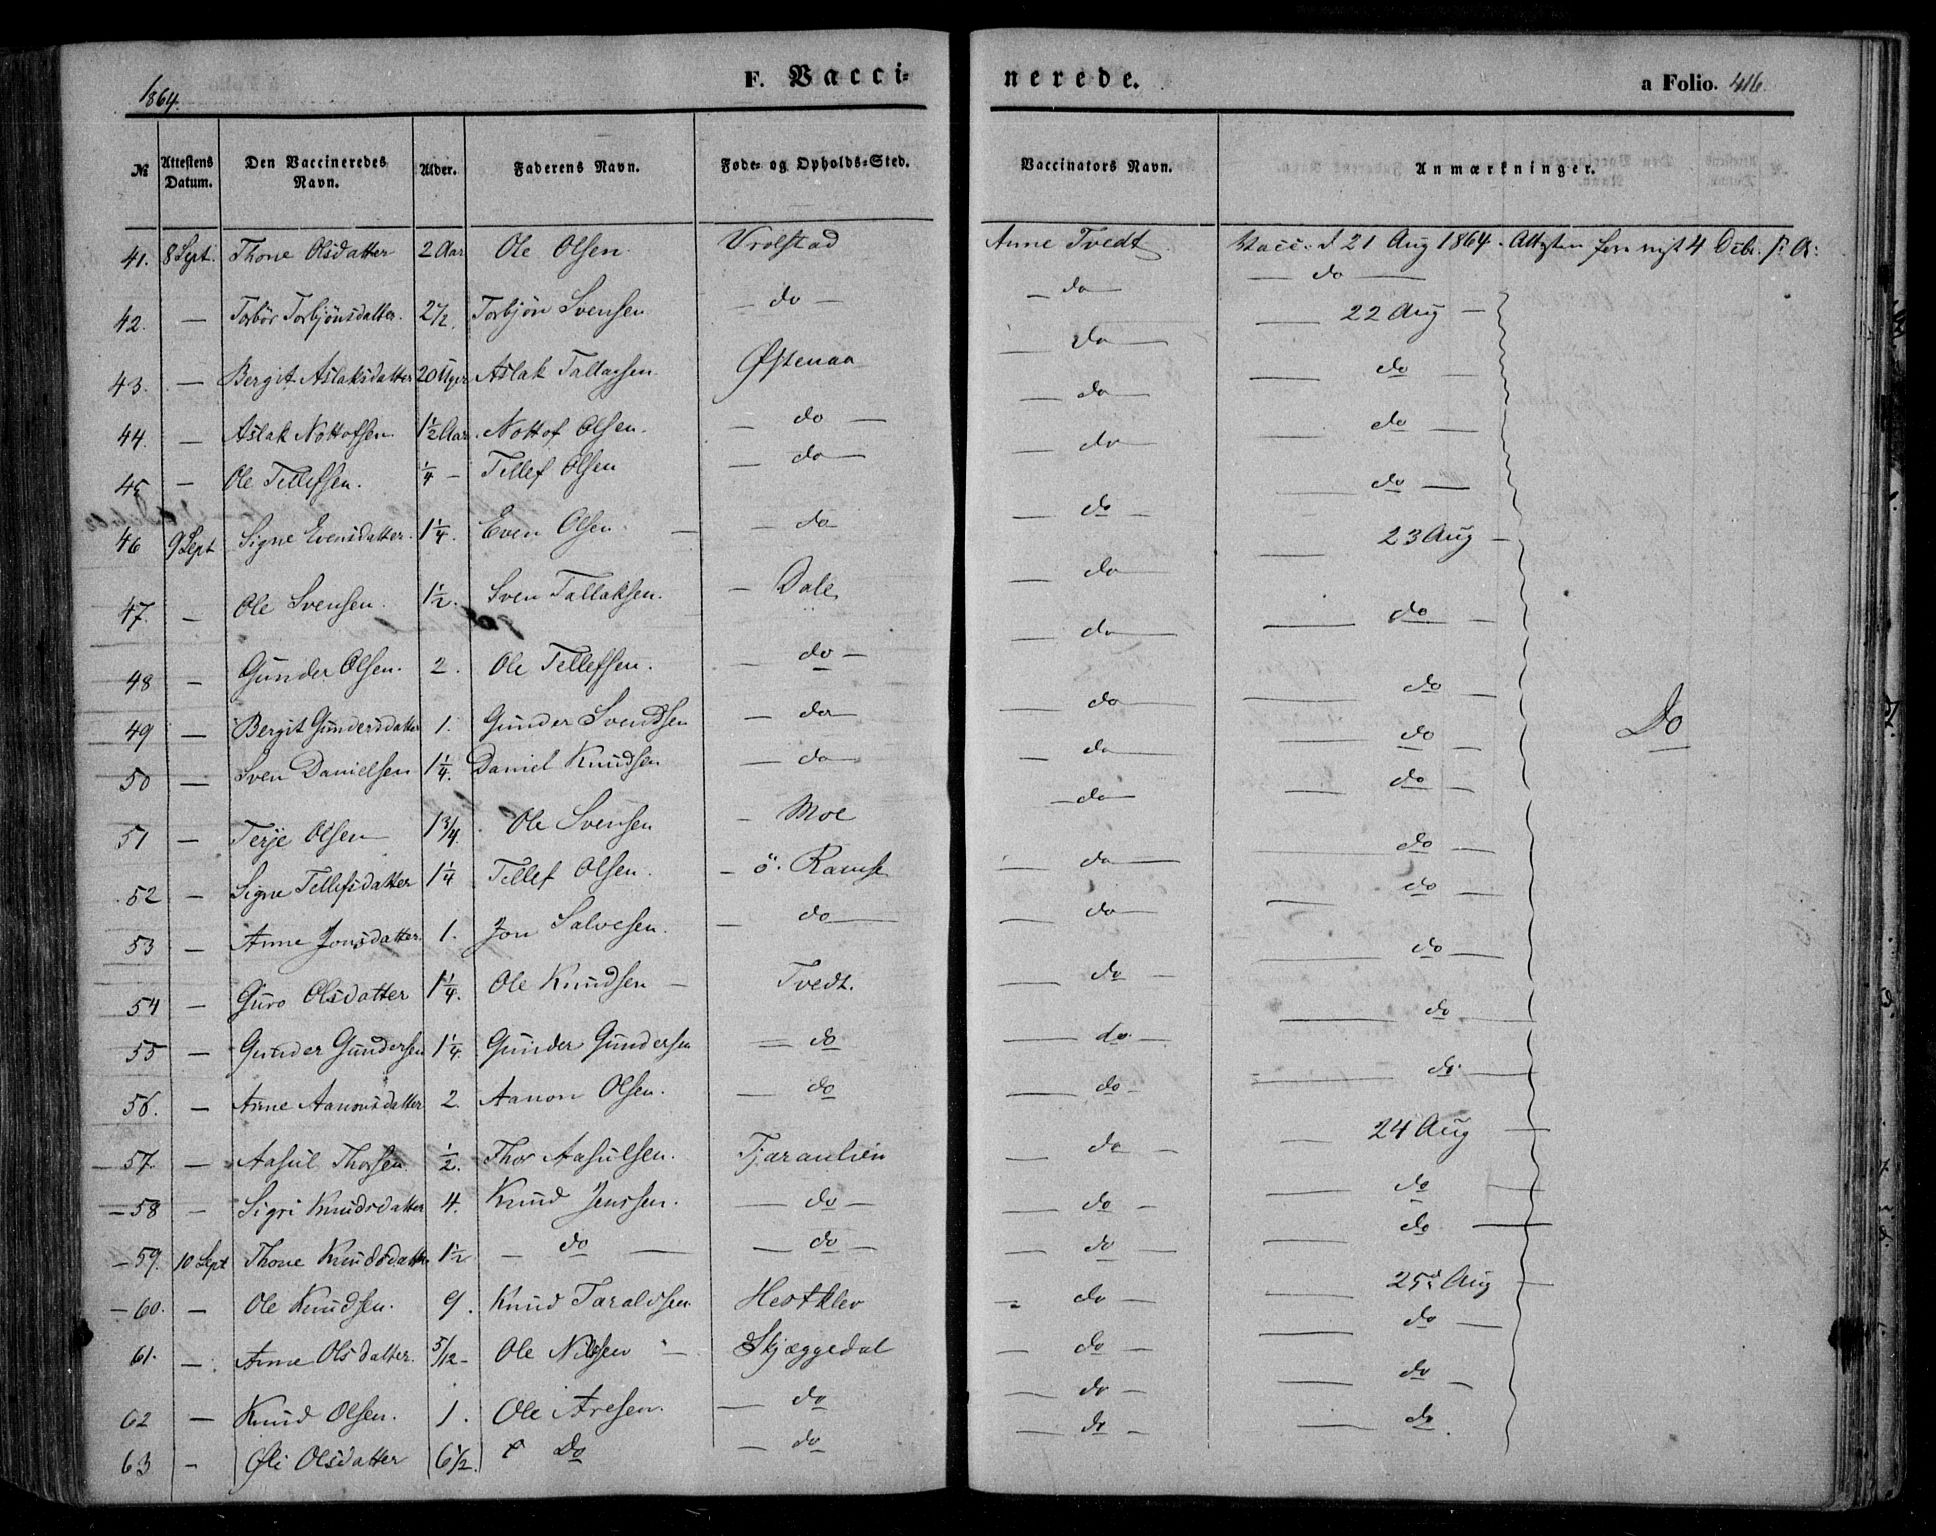 1864.
F. Vacci-
nerede.
a Folio. 416.
№ Attestens Datum. Den Vaccineredes Navn. Alder. Faderens Navn. Føde- og Opholds-Sted. Vaccinators Navn. Anmærkninger.
41. 8 Sept. Thone Olsdatter 2 Aar Ole Olsen. Vrolstad Anne Tvedt Vacc: d 21 Aug 1864. 4 Debr.
42. — Torbør Torbjönsdatter. 2 1/2. Torbjön Svensen — do — — do — do —
43. — Bergit Aslaksdatter 20 Uger Aslak Tallagsen. Østenaa — do — 22 Aug —
44. — Aslak Nottofsen 1 1/2 Aar. Nottof Olsen. — do — — do — — do —
45 — Ole Tellefsen. 1/4 — Tellef Olsen — do — — do — — do —
46 9 Sept Signe Evensdatter. 1 1/4. Even Olsen. — — do — do — — do —
47. — Ole Svensen. 1 1/2. Sven Tallaksen. — Dale — do — 23 Aug —
48 — Gunder Olsen. 2. Ole Tellefsen. — do — — do — — do —
49 — Bergit Gundersdatter 1. Gunder Svendsen — do — — do — — do — Do
50 — Sven Danielsen 1 1/4. Daniel Knudsen — do — — do — — do —
51 — Terje Olsen — 1 3/4. Ole Svensen — Moe — do — — do —
52 — Signe Tellefsdatter 1 1/4 Tellef Olsen. — ö. Ramse — do — — do —
53 — Anne Jonsdatter. 1. Jon Salvesen. — do — — do — — do —
54 — Guro Olsdatter 1 1/4. Ole Knudsen — Tvedt. — do — — do —
55 — Gunder Gundersen 1 1/4. Gunder Gundersen — do — do. — — do —
56. — Anne Aanonsdatter 2. Aanon Olsen. — do — do — — do —
57. — Aasul Thorsen 1/2. Thor Aasulsen. Tjæraulien — do — 24 Aug —
58 — Sigri Knudsdatter 4. Knud Jenssen. — do — — do — — do —
59. 10 Sept Thone Knudsdatter 1 1/2 — do — — do — — do — — do —
60. — Ole Knudsen. 9. Knud Taraldsen. Hestklev — do — 25d Aug —
61. — Anne Olsdatter. 5/12 — Ole Nilssen — Skjæggedal — do — — do —
62 — Knud Olsen. 1. Ole Aresen. — do — do — — do —
63 — Øli Olsdatter 6 1/2. Do — do — do — — do